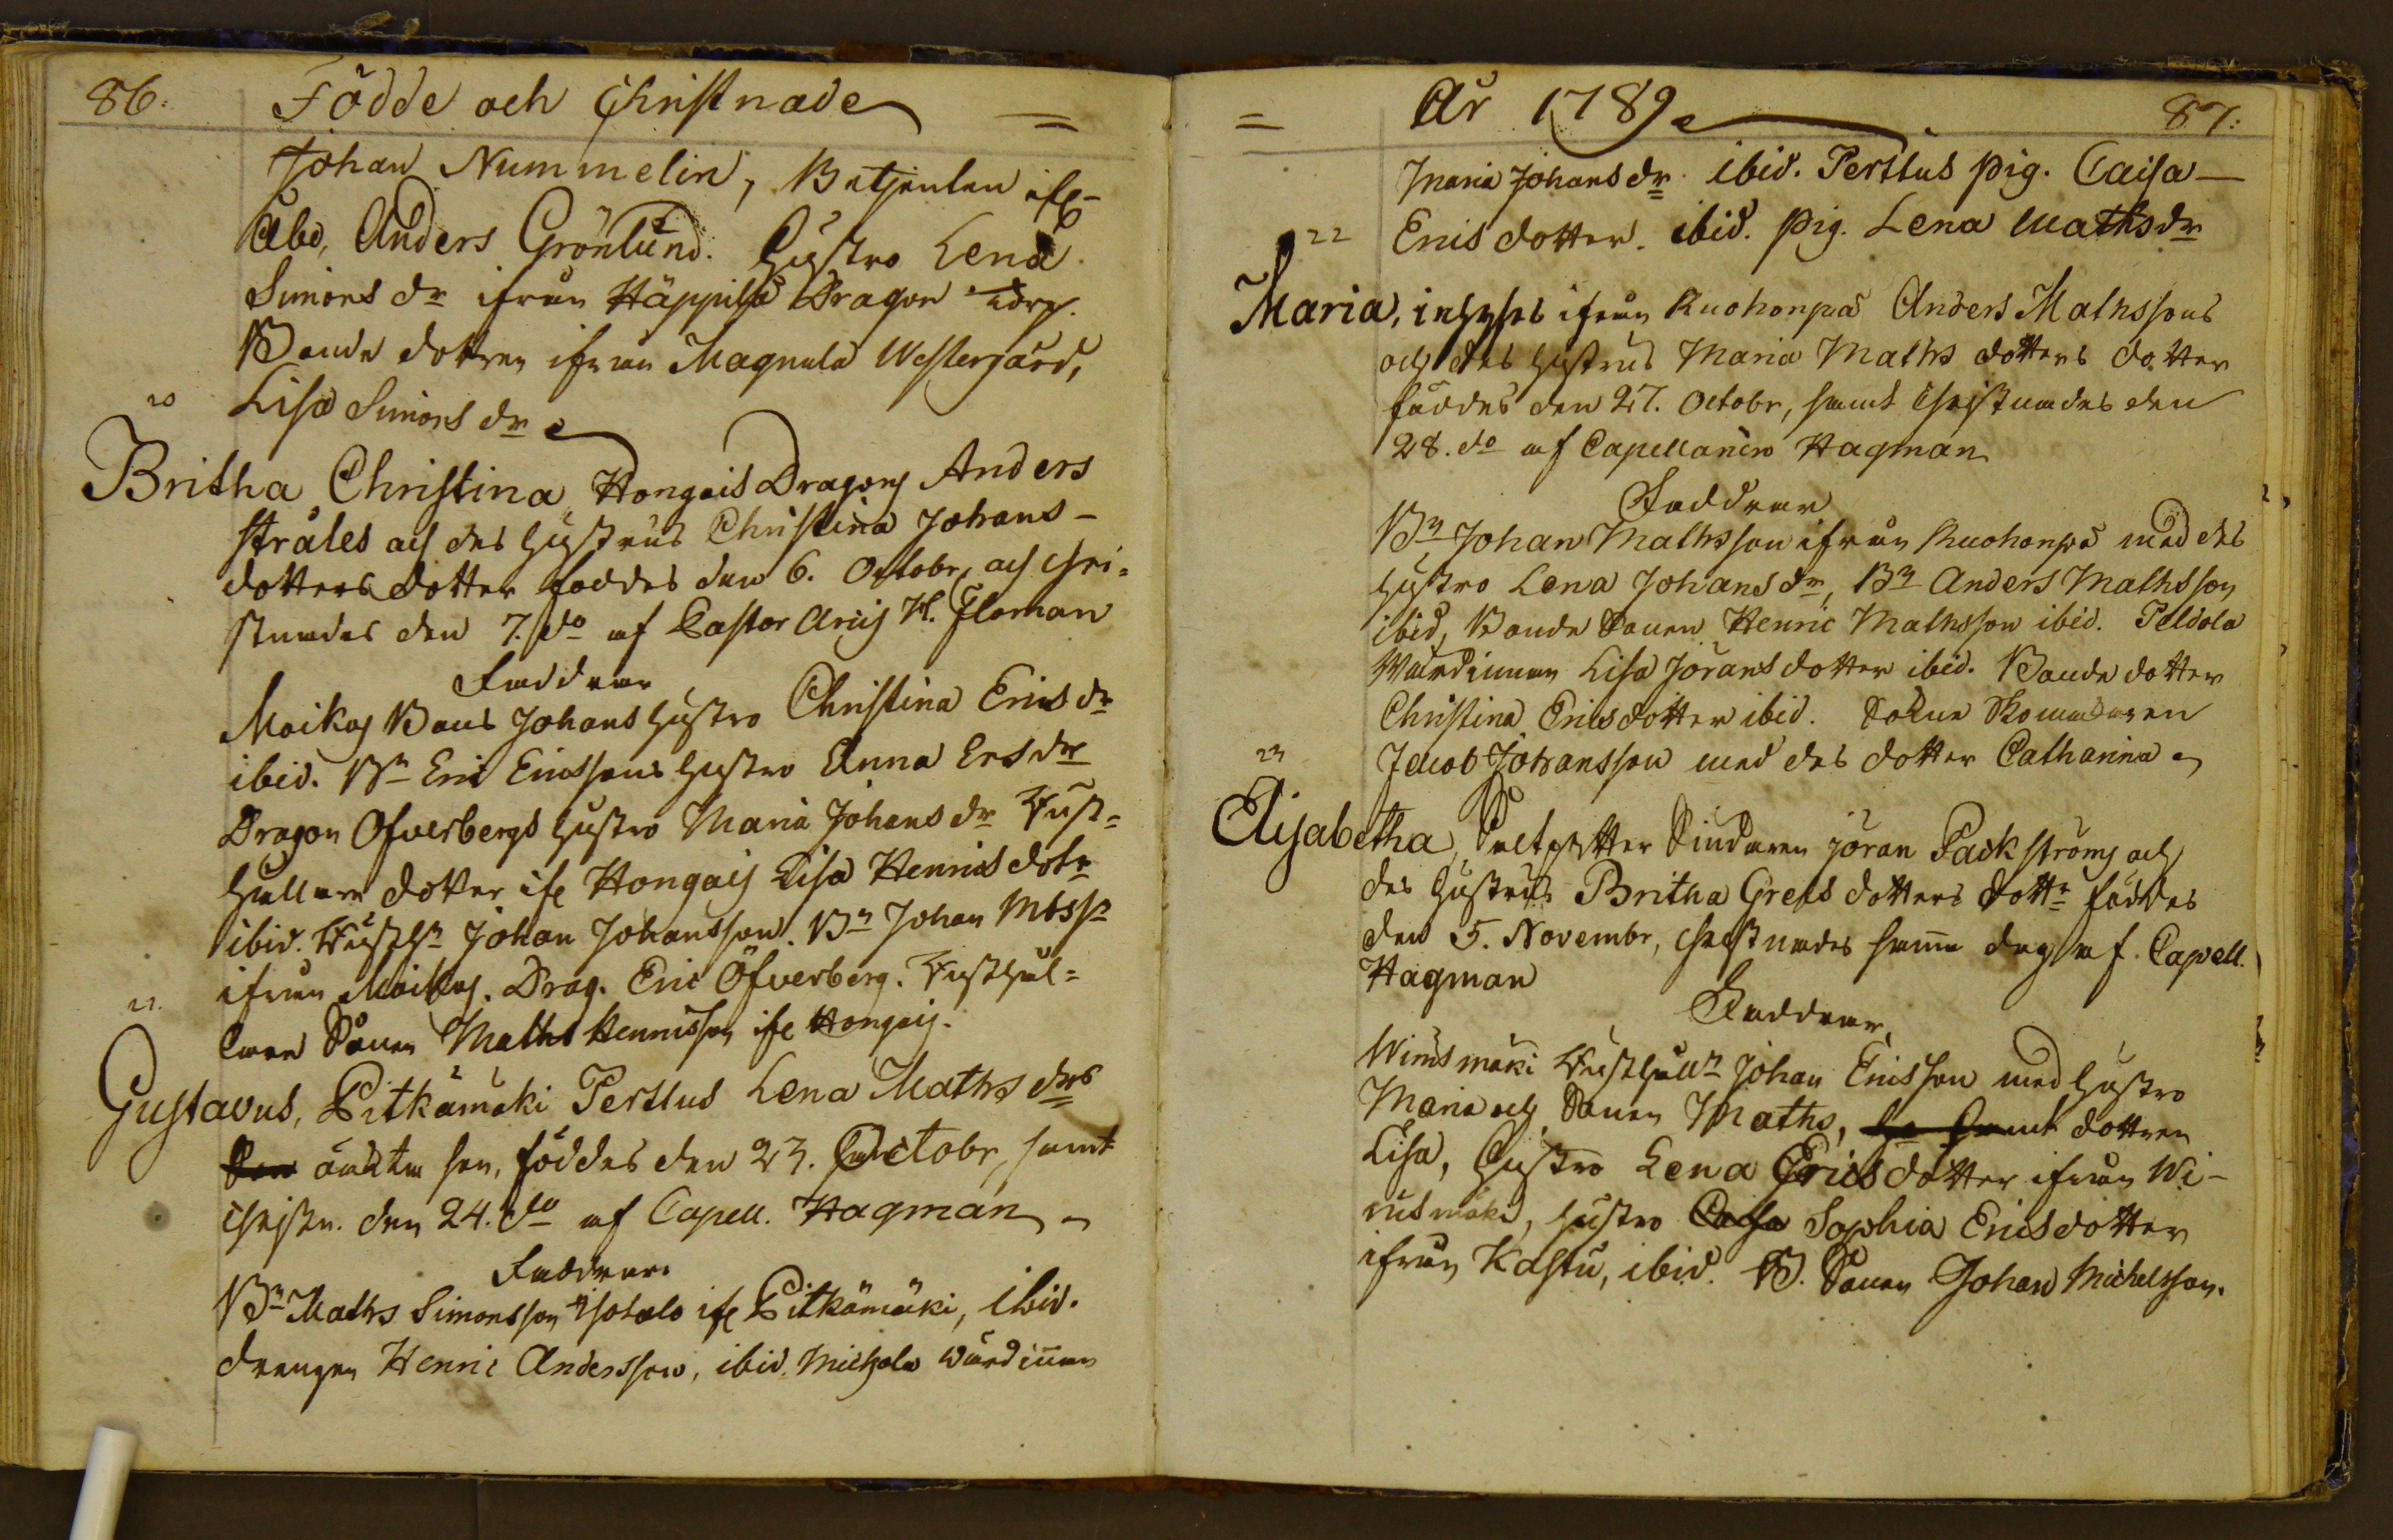 86. Födde och Christnade =
Johan Nummelin, Betjenten ifr.
Åbo, Anders Grönlund. Hustro Lena
Simons dr ifrån Häppilä Dragon torp.
Bonde dottren ifrån Magnula Westergård,
Lisa Simons dr
20
Britha Christina, Hongais Dragons Anders
Stråles och des Hustrus Christina Johans-
dotters dotter föddes den 6. Octobr, och Chri-
stnades den 7. do af Pastor Aric H. Floman
Faddrar
Moikois Bons Johans Hustro Christina Erics dr
ibid. Bn Eric Ericssons Hustro Anna Ersdr
Dragon Ofverbergs Hustro Maria Johans dr Rust-
hållare dotter ifr Hongais Lisa Henrics dotr
ibid. Rusthr Johan Johansson. Bn Johan Mtssn
ifrån Moikois. Drag. Eric Öfverberg. Rusthål-
lare Sonen Maths Henricsson ifr Hongais.
21.
Gustavus, Pitkämäki Perttus Lena Maths drs
oäkta son, föddes den 23. Octobr, samt
Christn. den 24. do af Capell. Hagman
Faddrar
Bn Maths Simonsson Isotalo ifr Pitkämäki, ibid.
drengen Henric Andersson, ibid. Michola Wärdinnan
= År 1789 87:
Maria Johansdr. ibid. Perttus pig. Caisa
Ericsdotter. ibid. pig. Lena Mathsdr
22
Maria, inhyses ifrån Ruohonpä Anders Mathssons
och des Hustrus Maria Maths dotters dotter
föddes den 27. Octobr, samt Christnades den
28. do af Capellanen Hagman
Faddrar
Bn Johan Mathsson ifrån Ruohonpä med des
Hustro Lena Johansdr, Bn Anders Mathsson
ibid, Bonde Sonen Henric Mathsson ibid. Peldola
Wärdinnan Lisa Jöransdotter ibid. Bonde dotter
Christina Ericsdotter ibid. Sokne Skomakaren
Jacob Johansson med des dotter Catharina
23
Elisabetha, Jöran Packströms och
des Hustrus Britha Grels dotters dottr föddes
den 5. Novembr, Christnades samma dag af Capell.
Hagman
Faddrar,
Wirusmäki Rusthållr Johan Ericsson med Hustro
Maria och Sonen Maths, samt dottren
Lisa, Hustro Lena Ericsdotter ifrån Wi-
rusmäki, Hustro Caisa Sophia Ericsdotter
ifrån Kastu, ibid. B. Sonen Johan Michelsson.